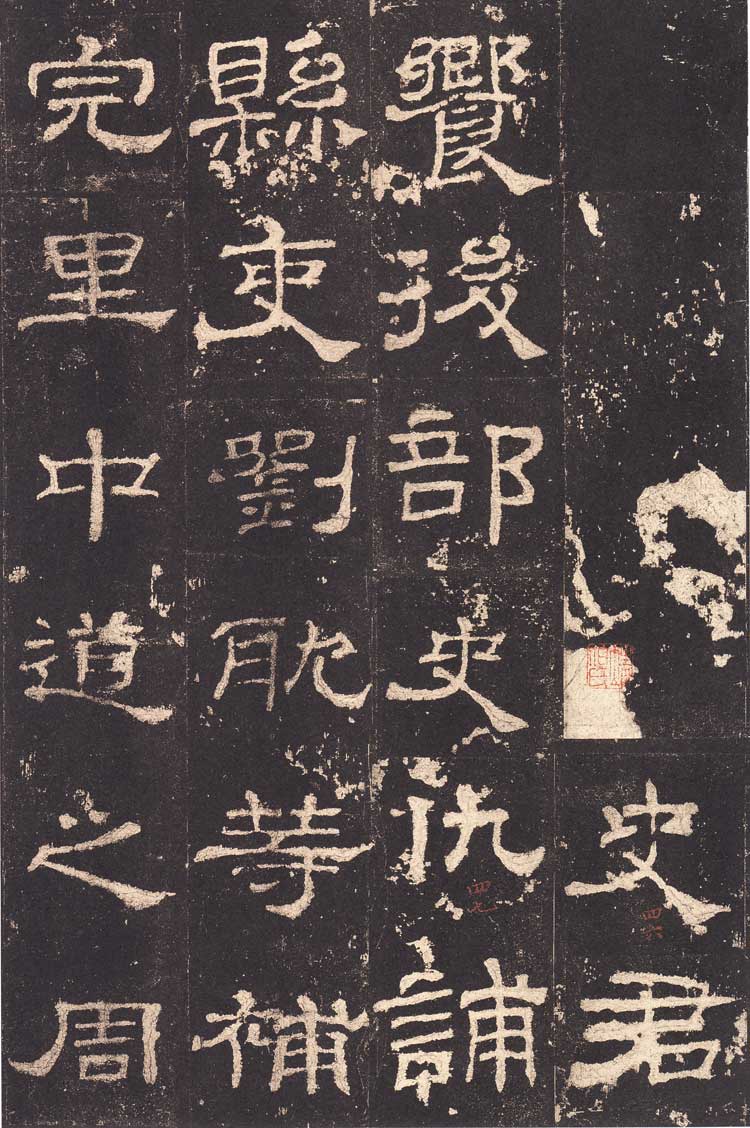 史君
四六
饗後部史仇誧
四七
縣吏劉耽等補
完里中道之周